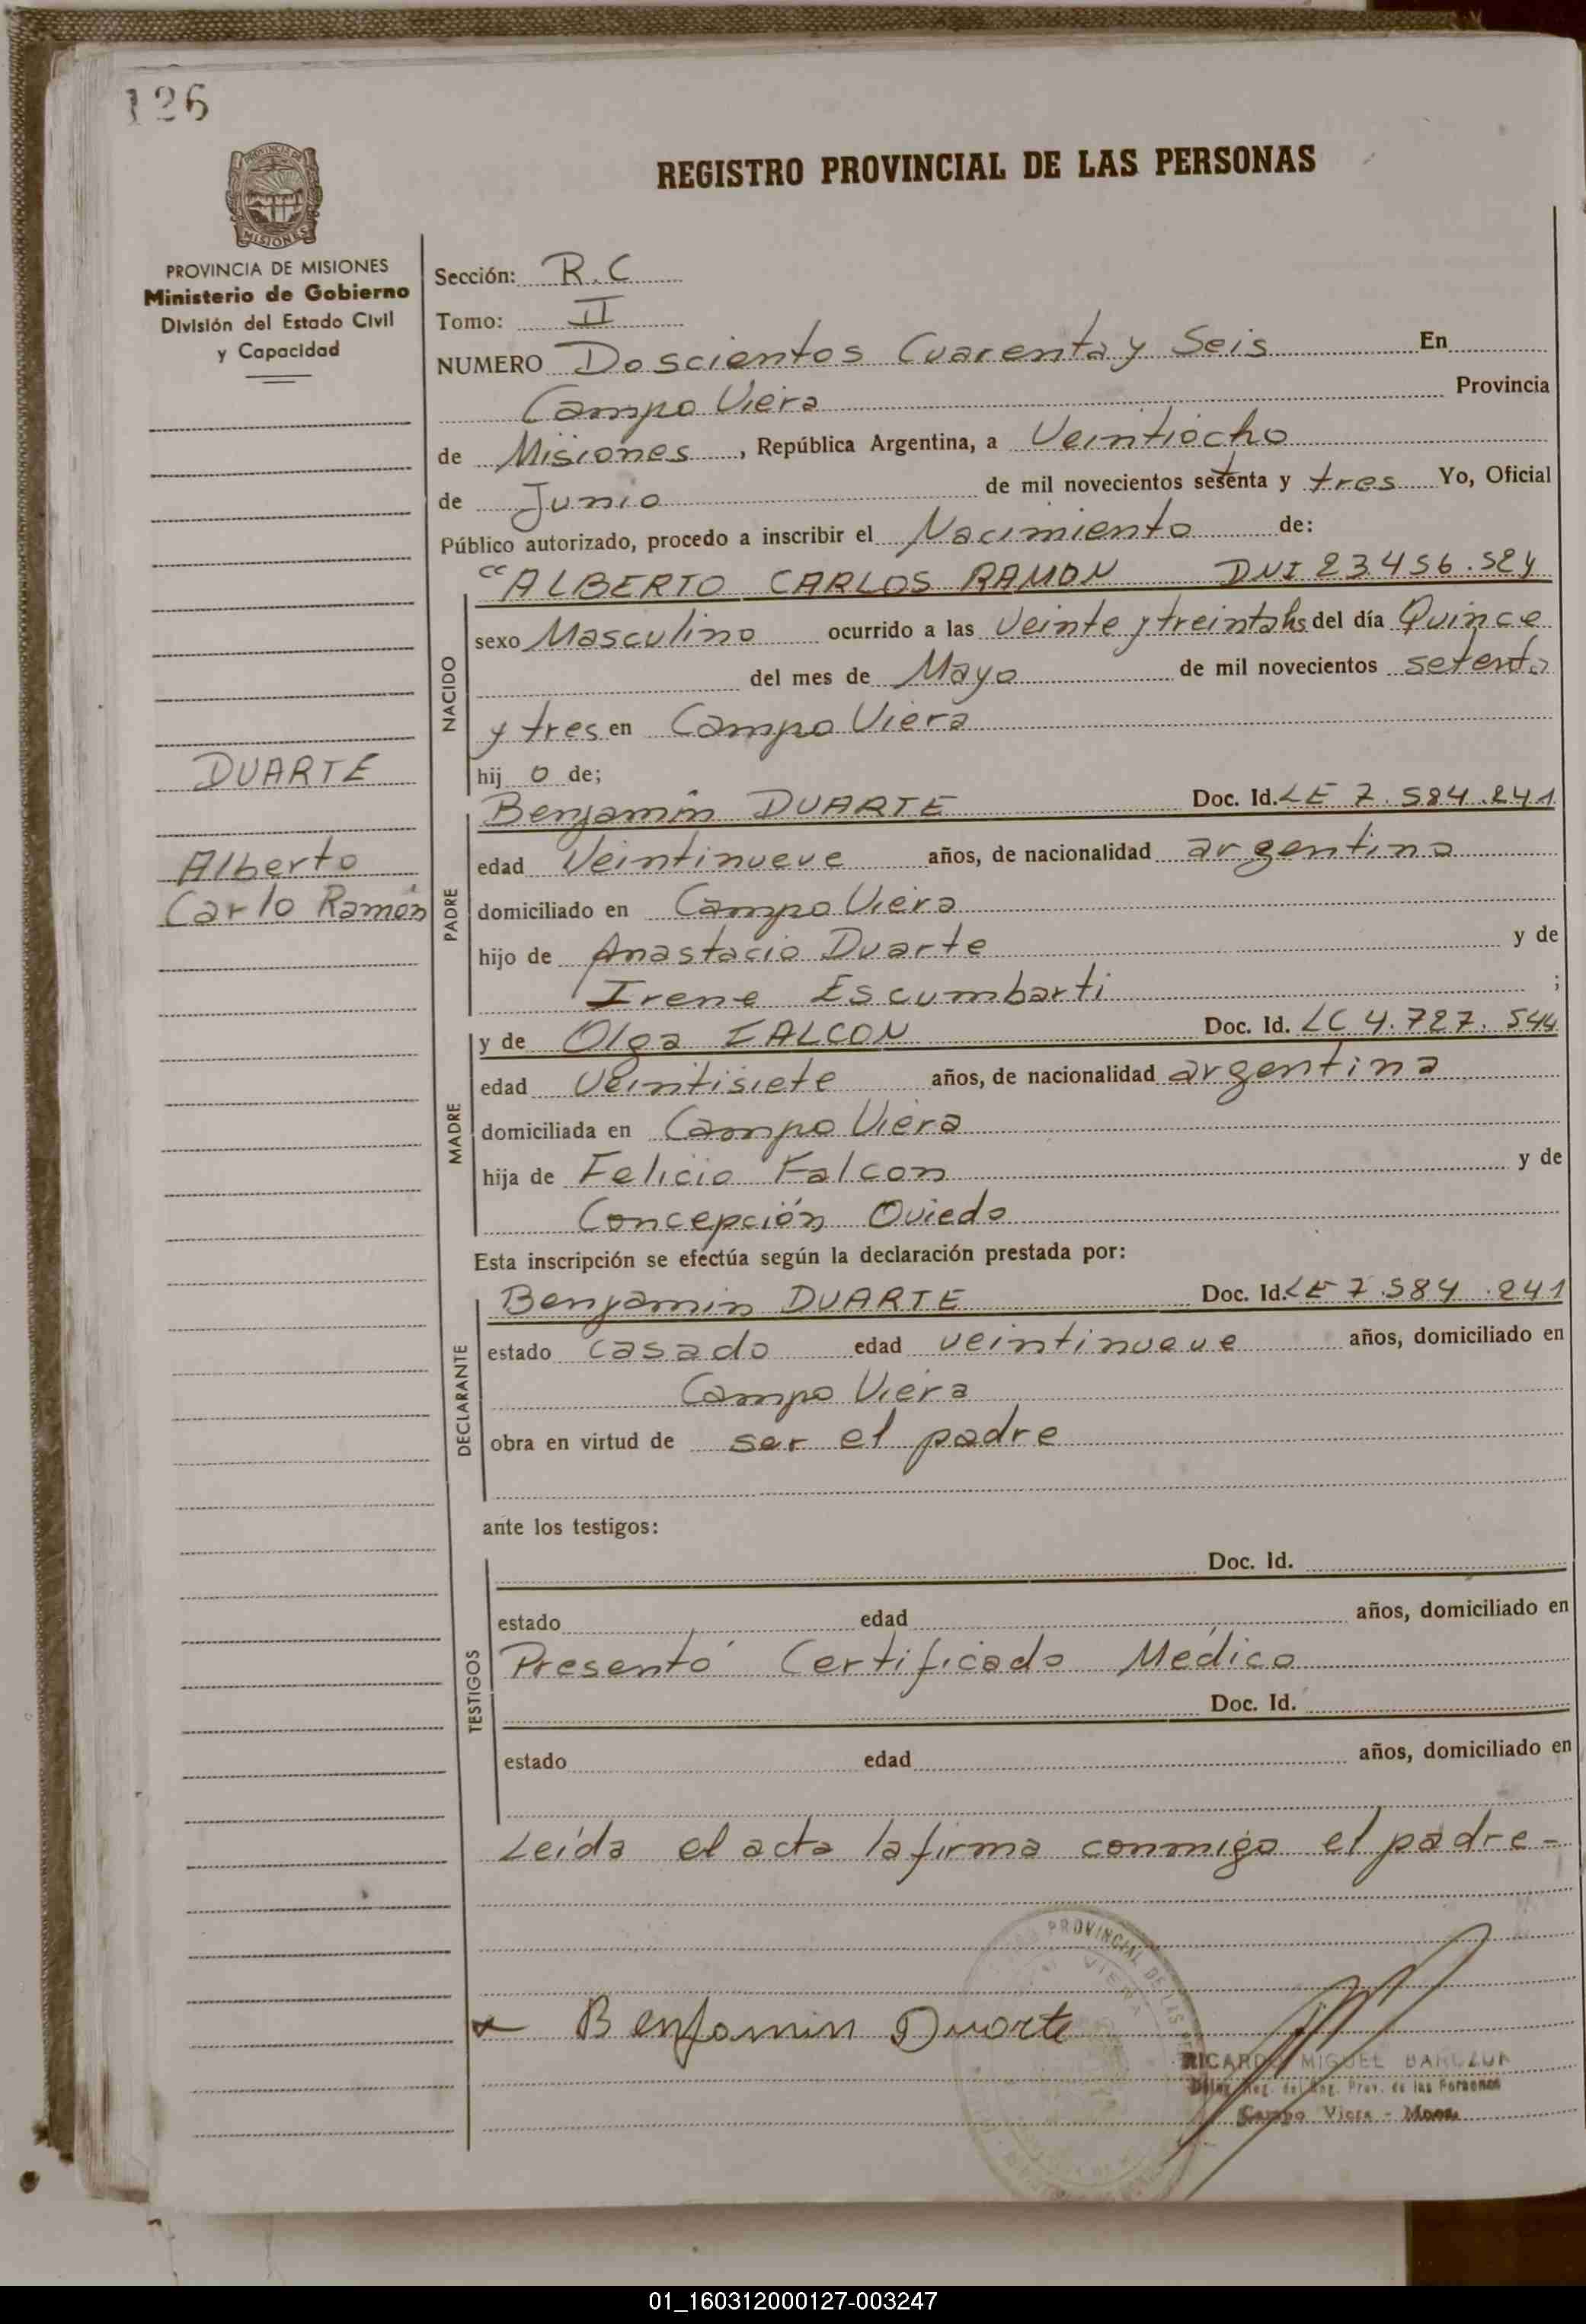 126
PROVINCIA DE
MISIONES
PROVINCIA DE MISIONES
Ministerio de Gobierno
División del Estado Civil
y Capacidad
DUARTE
Alberto
Carlo Ramón
REGISTRO PROVINCIAL DE LAS PERSONAS
Sección: R.C
Tomo: II
NUMERO Doscientos Cuarenta y Seis En
Campo Viera Provincia
de Misiones, República Argentina, a Veintiocho
de Junio de mil novecientos setenta y tres Yo, Oficial
Público autorizado, procedo a inscribir el Nacimiento de:
"ALBERTO CARLOS RAMON DNI 23.456.524
NACIDO
sexo Masculino ocurrido a las Veinte y treinta hs del día Quince
del mes de Mayo de mil novecientos setenta
y tres en Campo Viera
hij o de;
PADRE
Benjamín DUARTE Doc. Id. LE 7.584.241
edad Veintinueve años, de nacionalidad argentina
domiciliado en Campo Viera
hijo de Anastacio Duarte y de
Irene Escumbarti ;
MADRE
y de Olga FALCON Doc. Id. LC 4.727.544
edad Veintisiete años, de nacionalidad argentina
domiciliada en Campo Viera
hija de Felicio Falcon y de
Concepción Oviedo
Esta inscripción se efectúa según la declaración prestada por:
DECLARANTE
Benjamin DUARTE Doc. Id. LE 7.584.241
estado casado edad veintinueve años, domiciliado en
Campo Viera
obra en virtud de ser el padre
ante los testigos:
TESTIGOS
Doc. Id.
estado edad años, domiciliado en
Presentó Certificado Médico
Doc. Id.
estado edad años, domiciliado en
Leída el acta la firma conmigo el padre -
PROVINCIAL DE LAS
VIERA
Benjamin Duarte
RICARDO MIGUEL
Prov. de las Personas
Campo Viera - Mnes.
01_160312000127-003247